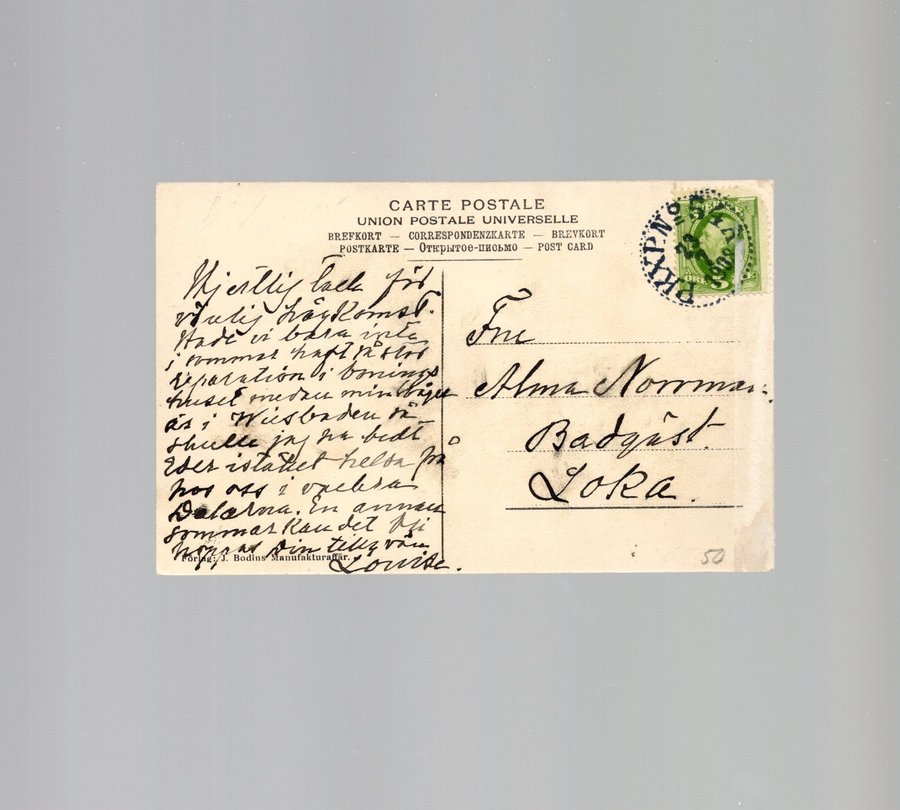 CARTE POSTALE
UNION POSTALE UNIVERSELLE
BREFKORT — CORRESPONDENZKARTE — BREVKORT
POSTKARTE — Открытое-письмо — POST CARD
PKXP.No
23
1908
5
Hjertlig tack för
vänlig hågkomst.
Hade vi bara inte
i sommar haft så stor
reparation i bonings
huset medan min
är i Wiesbaden så
skulle jag ha bedt
Eder istället helsa på
hos oss i vackra
Dalarna. En annan
sommar kan det bli
hoppas Din vän
Louise.
Fru
Alma Norrman.
Badgäst.
Loka.
Förlag: J. Bodins Manufakturaffär.
50